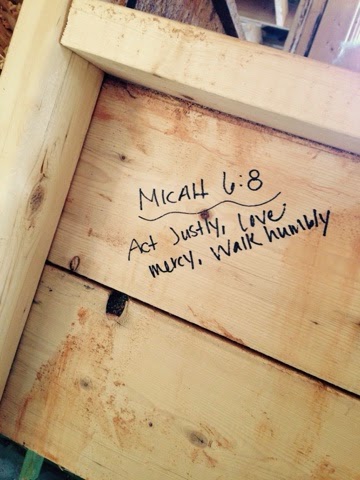 MICAH 6:8
Act Justly, love
mercy, Walk humbly